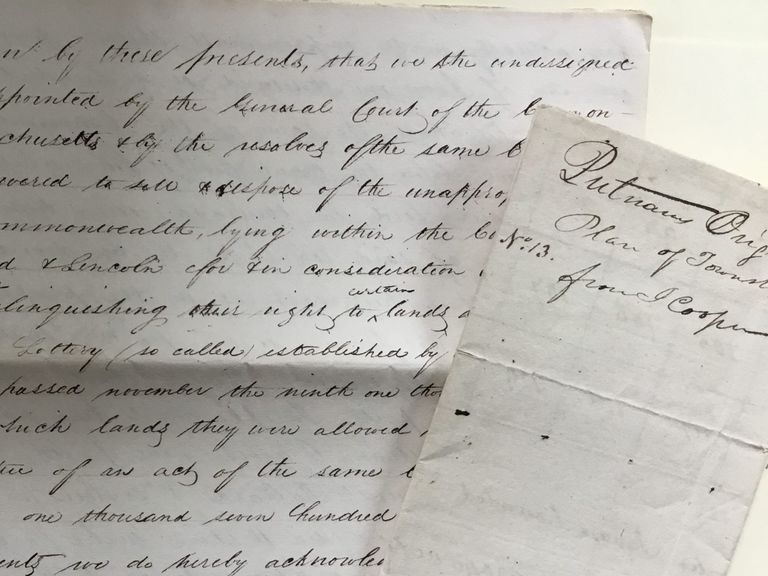 by these presents, that we the undersigned
ppointed by the General Court of the Common-
chusetts & by the resolves of the same
wered to sell & dispose of the unappro
mmonwealth, lying within the Co
d & Lincoln for & in consideration
linquishing their right to certain lands a
Lottery (so called) established by
passed november the ninth one thou
which lands they were allowed
tue of an act of the same
one thousand seven hundred
ents we do hereby acknowle
Putnams Orig
Plan of Townsh
No. 13.
from J Cooper